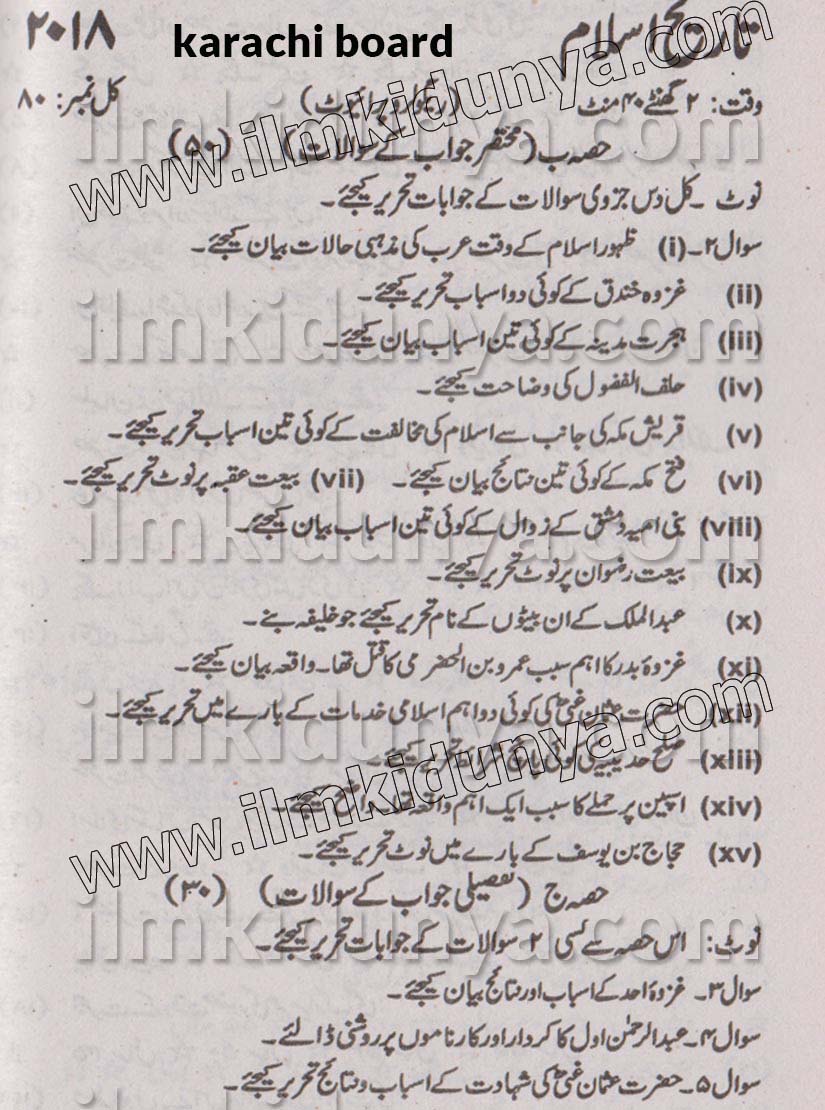 تاریخ اسلام karachi board ۲۰۱۸
وقت: ۲ گھنٹے ۴۰ منٹ (ریگولر و پرائیوٹ) کل نمبر: ۸۰
حصہ ب (مختصر جواب کے سوالات) (۵۰)
نوٹ ۔ کل دس جزوی سوالات کے جوابات تحریر کیجئے۔
سوال ۲۔ (i) ظہور اسلام کے وقت عرب کی مذہبی حالات بیان کیجئے۔
(ii) غزوہ خندق کے کوئی دو اسباب تحریر کیجئے۔
(iii) ہجرت مدینہ کے کوئی تین اسباب بیان کیجئے۔
(iv) حلف الفضول کی وضاحت کیجئے۔
(v) قریش مکہ کی جانب سے اسلام کی مخالفت کے کوئی تین اسباب تحریر کیجئے۔
(vi) فتح مکہ کے کوئی تین نتائج بیان کیجئے۔ (vii) بیعت عقبہ پر نوٹ تحریر کیجئے۔
(viii) بنی امیہ دمشق کے زوال کے کوئی تین اسباب بیان کیجئے۔
(ix) بیعت رضوان پر نوٹ تحریر کیجئے۔
(x) عبدالملک کے ان بیٹوں کے نام تحریر کیجئے جو خلیفہ بنے۔
(xi) غزوۂ بدر کا اہم سبب عمرو بن الحضرمی کا قتل تھا۔ واقعہ بیان کیجئے۔
(xii) حضرت عثمان غنیؓ کی کوئی دو اہم اسلامی خدمات کے بارے میں تحریر کیجئے۔
(xiii) صلح حدیبیہ کی کوئی پانچ شرائط تحریر کیجئے۔
(xiv) اسپین پر حملے کا سبب ایک اہم واقعہ تھا۔ واضح کیجئے۔
(xv) حجاج بن یوسف کے بارے میں نوٹ تحریر کیجئے۔
حصہ ج (تفصیلی جواب کے سوالات) (۳۰)
نوٹ: اس حصہ سے کسی ۲ سوالات کے جوابات تحریر کیجئے۔
سوال ۳۔ غزوۂ احد کے اسباب اور نتائج بیان کیجئے۔
سوال ۴۔ عبدالرحمٰن اول کا کردار اور کارناموں پر روشنی ڈالئے۔
سوال ۵۔ حضرت عثمان غنیؓ کی شہادت کے اسباب و نتائج تحریر کیجئے۔
www.ilmkidunya.com
www.ilmkidunya.com
ilmkidunya.com
ilmkidunya.com
ilmkidunya.com
ilmkidunya.com
ilmkidunya.com
ilmkidunya.com